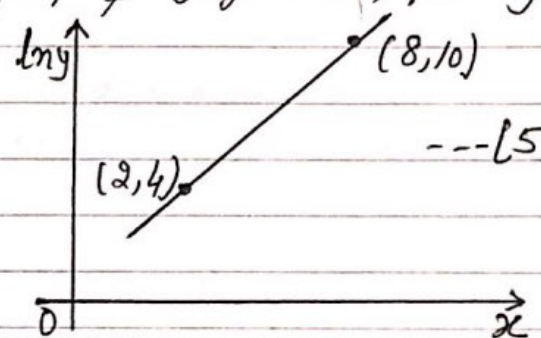 lny
(8,10)
---[5
(2,4)
0
x